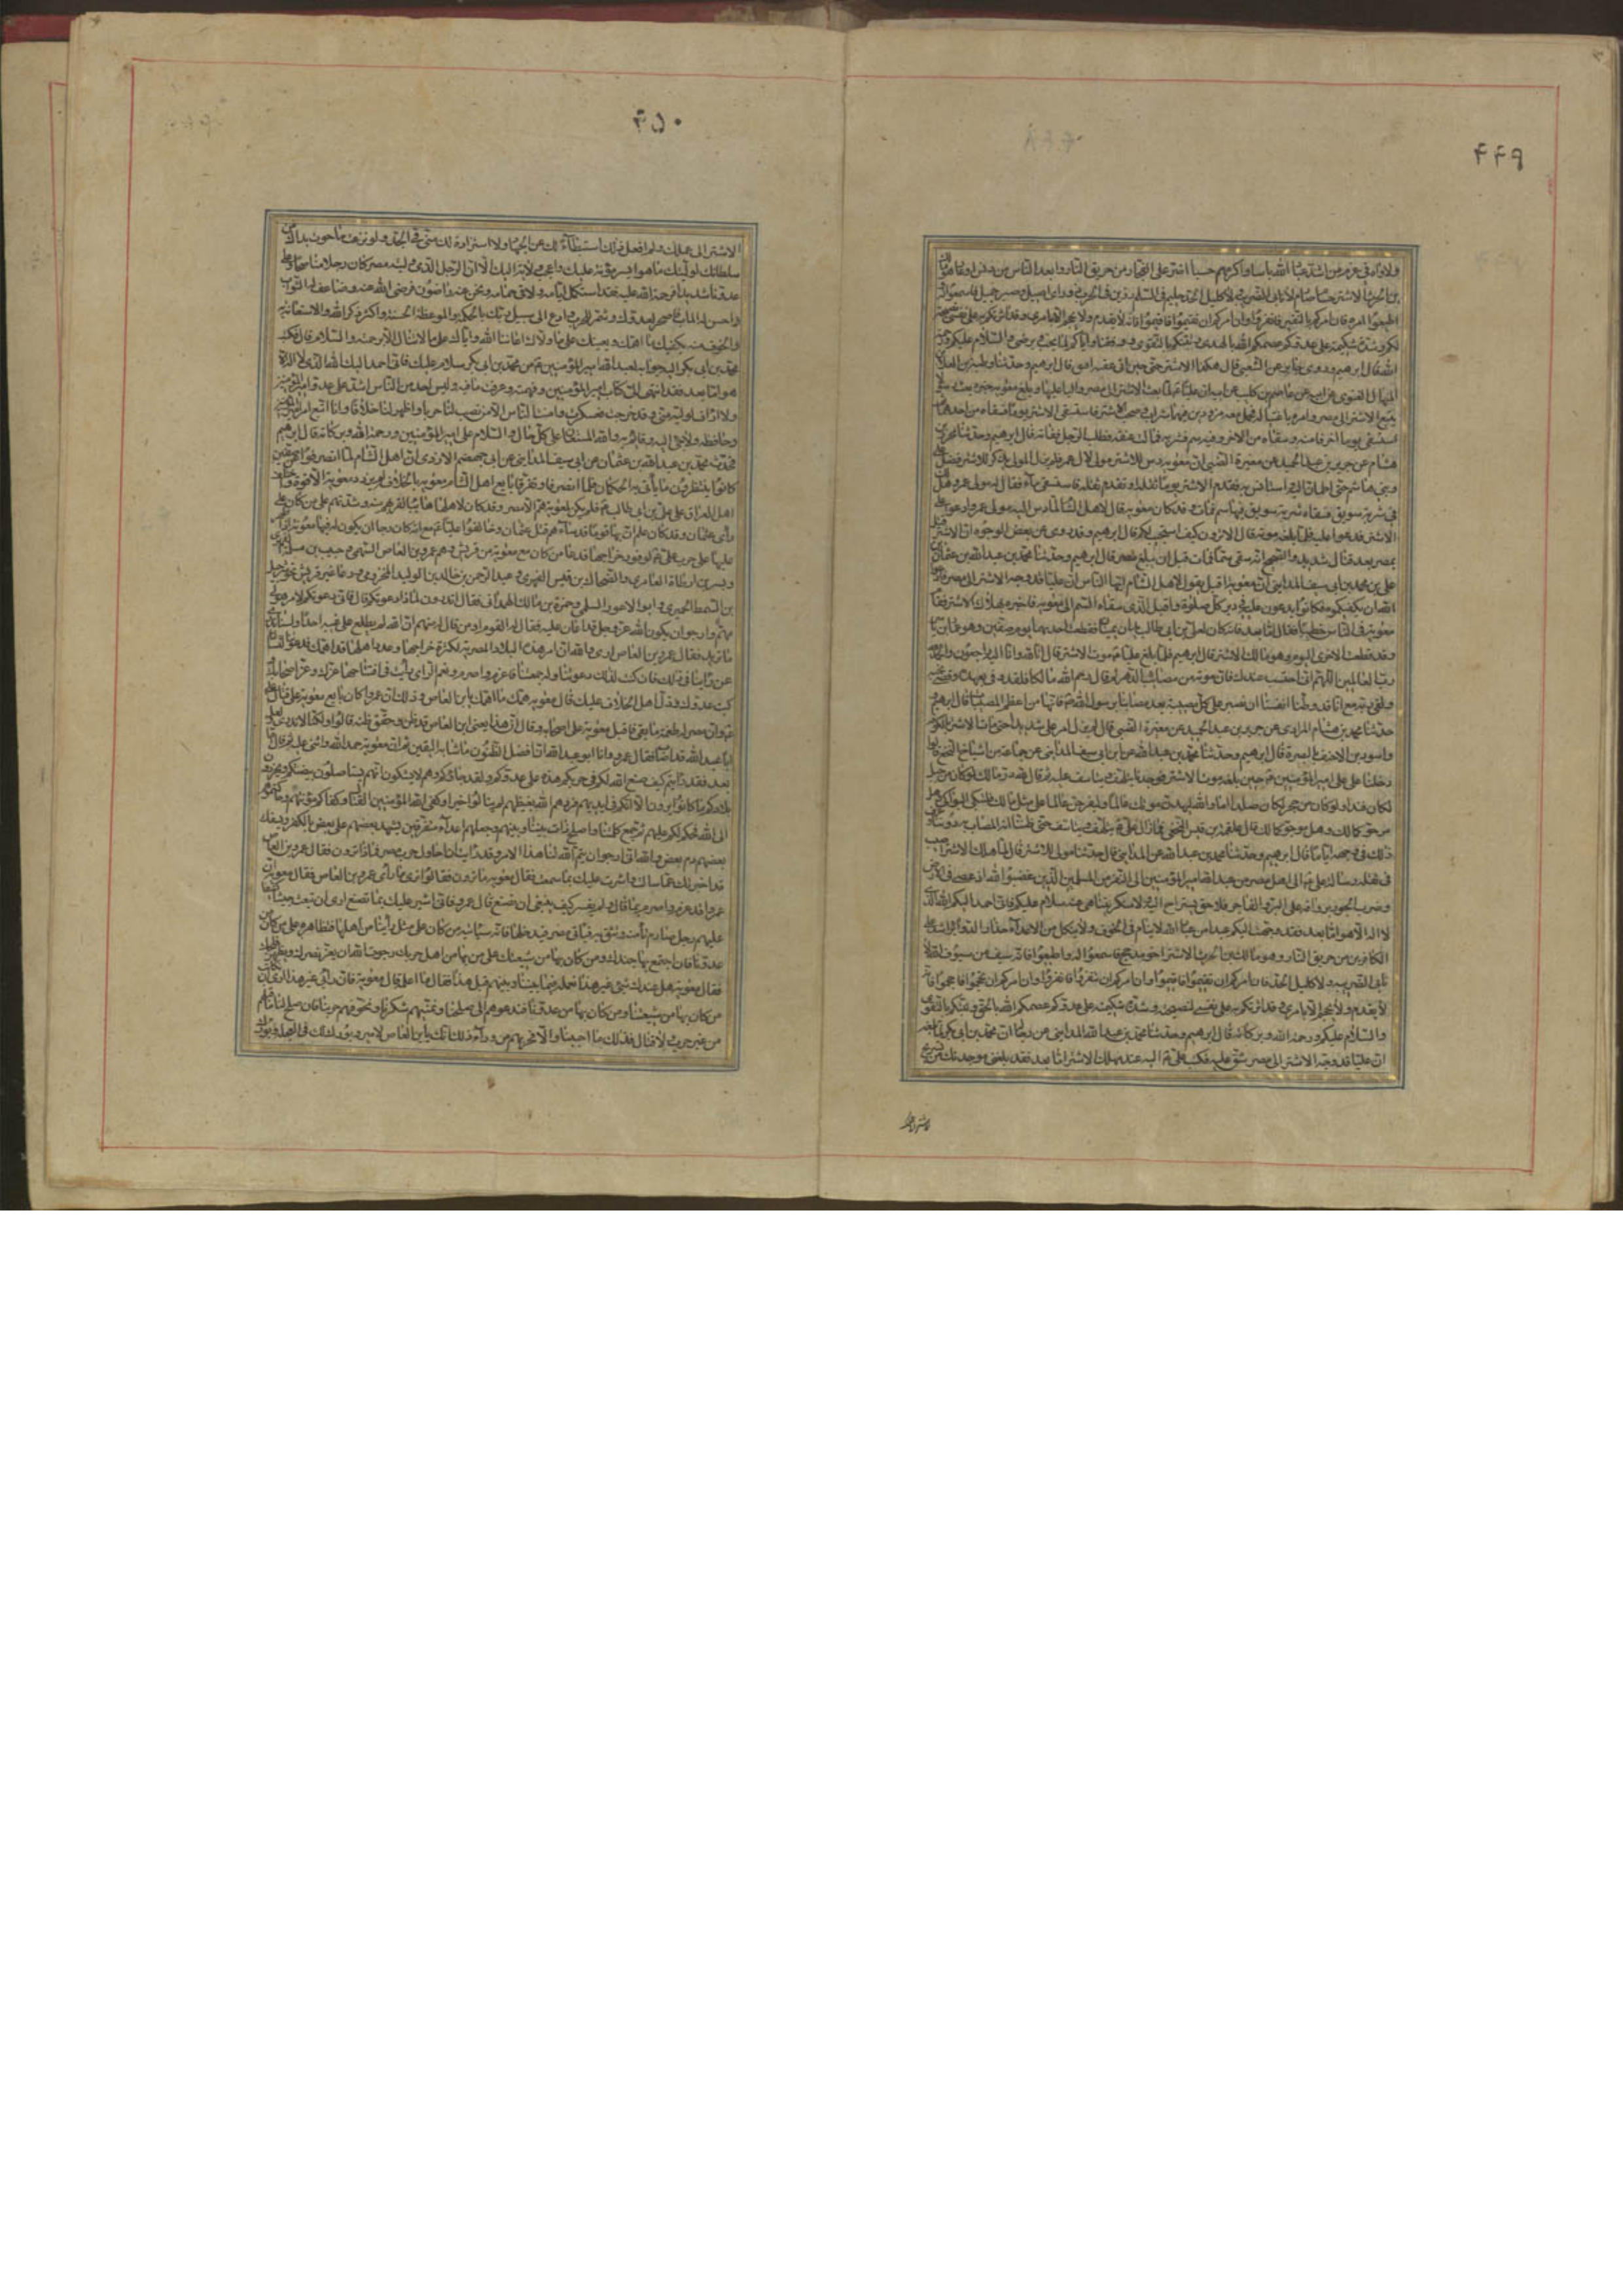 ۴۴۹
ولا اوباه في عزم من اشد عباد الله باسا واكرمهم حسبا اضر على الفجار من حريق النار وابعد الناس من دنس او عار وهو مالك
بن الحرث الاشتر حسام صارم لا نابي الضريبة ولا كليل الحد حليم في السلم رزين في الحرب ذو راي اصيل وصبر جميل فاسمعوا له
واطيعوا امره فان امركم بالنفير فانفروا وان امركم ان تقيموا فاقيموا فانه لا يقدم ولا يحجم الا بامري وقد اثرتكم به على نفسي نصيحة
لكم وشدة شكيمة على عدوكم عصمكم الله بالهدى وثبتكم بالتقوى ووفقنا واياكم لما يحب ويرضى والسلام عليكم ورحمة
الله قال ابرهيم وروى جابر عن الشعبي قال هلك الاشتر حين اتى عقبه افيق قال ابرهيم وحدثنا وطبة بن العلا
بن المنهال الغنوي عن ابيه عن عاصم بن كليب عن ابيه ان عليا ع لما بعث الاشتر الى مصر واليا عليها وبلغ معوية خبره بعث رسولا
يتبع الاشتر الى مصر وامره باغتياله فحمل معه مزودين فيهما شراب وصحب الاشتر فاستسقى الاشتر يوما فسقاه من احدهما ثم
استسقى يوما اخر فامنه وسقاه من الاخر وفيه سم فشربه فمالت عنقه فطلب الرجل ففاته قال ابرهيم وحدثنا محرز بن
هشام عن جرير بن عبد الحميد عن مغيرة الضبي ان معوية دس للاشتر مولى لال عمر فلم يزل المولى يذكر للاشتر فضل علي
وبني هاشم حتى اطمان اليه واستانس به فقدم الاشتر يوما ثقله او تقدم ثقله فاستسقى ماء فقال له مولى عمر وهل لك
في شربة سويق فسقاه شربة سويق فيها سم فمات وقد كان معوية قال لاهل الشام لما دس اليه مولى عمر ادعوا على
الاشتر فدعوا عليه فلما بلغه موته قال الا ترون كيف استجيب لكم قال ابرهيم وقد روى من بعض الوجوه ان الاشتر قتل
بمصر بعد قتال شديد والصحيح انه سقي سما فمات قبل ان يبلغ مصر قال ابرهيم وحدثنا محمد بن عبد الله بن عثمان عن
علي بن محمد بن ابي سيف المدايني ان معوية اقبل يقول لاهل الشام ايها الناس ان عليا قد وجه الاشتر الى مصر فادعوا
الله ان يكفيكموه فكانوا يدعون عليه في دبر كل صلوة واقبل الذي سقاه السم الى معوية فاخبره بهلاك الاشتر فقام
معوية في الناس خطيبا فقال اما بعد فانه كان لعلي بن ابي طالب يدان يمينان فقطعت احديهما يوم صفين وهو عمار بن ياسر
وقد قطعت الاخرى اليوم وهو مالك الاشتر قال ابرهيم فلما بلغ عليا ع موت الاشتر قال انا لله وانا اليه راجعون والحمد لله
رب العالمين اللهم اني احتسبه عندك فان موته من مصائب الدهر ثم قال رحم الله مالكا فلقد وفى بعهده وقضى نحبه
ولقي ربه مع انا قد وطنا انفسنا ان نصبر على كل مصيبة بعد مصابنا برسول الله ص فانها من اعظم المصيبات قال ابرهيم
حدثنا محمد بن هشام المرادي عن جرير بن عبد الحميد عن مغيرة الضبي قال لم يزل امر علي شديدا حتى مات الاشتر
دخلنا على علي امير المؤمنين ع حين بلغه موت الاشتر فوجدناه يتلهف ويتاسف عليه ثم قال لله در مالك لو كان من جبل
لكان فندا ولو كان من حجر لكان صلدا اما والله ليهدن موتك عالما وليفرحن عالما على مثل مالك فلتبك البواكي وهل
مرجو كمالك وهل موجود كمالك قال علقمة بن قيس النخعي فما زال علي ع يتلهف ويتاسف حتى ظننا انه المصاب به دوننا وعرف
ذلك في وجهه اياما قال ابرهيم وحدثنا محمد بن عبد الله عن المدايني قال حدثنا مولى للاشتر قال لما هلك الاشتر اصيب
في ثقله رسالة علي ع الى اهل مصر من عبد الله امير المؤمنين الى النفر من المسلمين الذين غضبوا لله اذ عصي في الارض
وضرب الجور برواقه على البر والفاجر فلا حق يستراح اليه ولا منكر يتناهى عنه سلام عليكم فاني احمد اليكم الله الذي
لا اله الا هو اما بعد فقد وجهت اليكم عبدا من عباد الله لا ينام في الخوف ولا ينكل من الاعداء حذار الدوائر اشد على
الكافرين من حريق النار وهو مالك بن الحرث الاشتر اخو مذحج فاسمعوا له واطيعوا فانه سيف من سيوف الله لا
نابي الضريبة ولا كليل الحد فان امركم ان تقيموا فاقيموا وان امركم ان تنفروا فانفروا وان امركم ان تحجموا فاحجموا فانه
لا يقدم ولا يحجم الا بامري وقد اثرتكم به على نفسي لنصيحته وشدة شكيمته على عدوكم عصمكم الله بالحق وثبتكم بالتقوى
والسلام عليكم ورحمة الله وبركاته قال ابرهيم وحدثنا محمد بن عبد الله المدايني عن رجاله ان محمد بن ابي بكر لما بلغه
ان عليا قد وجه الاشتر الى مصر شق عليه فكتب علي ع اليه عند مهلك الاشتر اما بعد فقد بلغني موجدتك من تسريح
۴۵۰
الاشتر الى عملك ولم افعل ذلك استبطاء لك عن الجهاد ولا استزادة لك مني في الجد ولو نزعت ما حوت يداك من
سلطانك لوليتك ما هو ايسر مؤنة عليك واعجب ولاية اليك الا ان الرجل الذي وليته مصر كان رجلا مناصحا وعلى
عدونا شديدا فرحمة الله عليه فقد استكمل ايامه ولاقى حمامه ونحن عنه راضون فرضي الله عنه وضاعف له الثواب
واحسن له المآب فاصحر لعدوك وشمر للحرب وادع الى سبيل ربك بالحكمة والموعظة الحسنة واكثر ذكر الله والاستعانة به
والخوف منه يكفيك ما اهمك ويعينك على ما ولاك اعاننا الله واياك على ما لا ينال الا برحمته والسلام قال فكتب
محمد بن ابي بكر اليه جوابه لعبد الله امير المؤمنين ع من محمد بن ابي بكر سلام عليك فاني احمد اليك الله الذي لا اله الا
هو اما بعد فقد انتهى الي كتاب امير المؤمنين وفهمته وعرفت ما فيه وليس احد من الناس اشد على عدو امير المؤمنين
ولا اراف لوليه مني وقد خرجت فعسكرت وامنت الناس الا من نصب لنا حربا واظهر لنا خلافا وانا اتبع امر امير المؤمنين
وحافظه ولاجئ اليه وقائم به والله المستعان على كل حال والسلام على امير المؤمنين ورحمة الله وبركاته قال ابرهيم
فحدثنا محمد بن عبد الله بن عثمان عن ابي سيف المدايني عن ابي جهضم الازدي ان اهل الشام لما انصرفوا عن صفين
كانوا ينتظرون ما ياتي به الحكمان فلما انصرفا وتفرقا بايع اهل الشام معوية بالخلافة فلم يزدد معوية الا قوة واختلف
اهل العراق على علي بن ابي طالب ع فلم يكن لمعوية هم الا مصر وقد كان لاهلها هائبا لقربهم منه وشدتهم على من كان على
راي عثمان وقد كان علم ان بها قوما قد ساءهم قتل عثمان وخالفوا عليا ع مع انه كان رجا ان يكون له فيها معاونة اذا ظهر
عليها على حرب علي ع لوفور خراجها فدعا من كان معه من قريش وهم عمرو بن العاص السهمي وحبيب بن مسلمة الفهري
وبسر بن ارطاة العامري والضحاك بن قيس الفهري وعبد الرحمن بن خالد بن الوليد المخزومي ودعا غير قريش نحو شرحبيل
بن السمط الحميري وابو الاعور السلمي وحمزة بن مالك الهمداني فقال اتدرون لماذا دعوتكم قال فاني دعوتكم لامر هو لي
مهم وارجو ان يكون الله عز وجل قد اعان عليه فقال له القوم او من قال له منهم ان الله لم يطلع على غيبه احدا ولسنا ندري
ما تريد فقال عمرو بن العاص ارى والله ان امر هذه البلاد المصرية لكثرة خراجها وعدد اهلها قد اهمك فدعوتنا تسألنا
عن راينا في ذلك فان كنت لذلك دعوتنا وله جمعتنا فاعزم واصرم ونعم الراي رأيت في افتتاحها عزك وعز اصحابك
كبت عدوك وذل اهل الخلاف عليك قال معوية اهمك ما اهمك يا ابن العاص وذلك ان عمرا كان بايع معوية على قتال علي
ع وان مصر له طعمة ما بقي فاقبل معوية على اصحابه وقال ان هذا يعني ابن العاص قد ظن وحقق ظنه قالوا ولكنا لا ندري ولعل
ابا عبد الله قد اصاب فقال عمرو وانا ابو عبد الله ان افضل الظنون ما شابه اليقين ثم ان معوية حمد الله واثنى عليه ثم قال اما
بعد فقد رايتم كيف صنع الله لكم في حربكم هذه على عدوكم ولقد جاؤكم وهم لا يشكون انهم يستاصلون بيضتكم ويحوزون
بلادكم ما كانوا يرون الا انكم في ايديهم فردهم الله بغيظهم لم ينالوا خيرا وكفى الله المؤمنين القتال وكفاكم مؤنتهم وحاكمتموهم
الى الله فحكم لكم عليهم ثم جمع كلمتنا واصلح ذات بيننا وبينهم وجعلهم اعداء متفرقين يشهد بعضهم على بعض بالكفر ويسفك
بعضهم دم بعض والله اني لارجو ان يتم الله لنا هذا الامر وقد رايت ان احاول حرب مصر فماذا ترون فقال عمرو بن العاص
قد اخبرتك عما سالت واشرت عليك بما سمعت فقال معوية ما ترون فقالوا نرى ما رأى عمرو بن العاص فقال معوية ان
عمروا قد عزم واصرم بما قال ولم يفسر كيف ينبغي ان نصنع قال عمرو فاني اشير عليك بما تصنع ارى ان تبعث جيشا كثيفا
عليهم رجل صارم تأمنه وتثق به فياتي مصر فيدخلها فانه سياتيه من كان على مثل رأينا من اهلها فنظاهره على من كان من
عدونا فان اجتمع بها جندك ومن كان بها من شيعتك على من بها من اهل حربك رجوت الله ان يعز نصرك ويظهر فلجك
فقال معوية هل عندك شئ غير هذا نعمله فيما بيننا وبينهم قبل هذا قال ما اعلمه قال معوية فان رأيي غير هذا ارى ان نكاتب
من كان بها من شيعتنا ومن كان بها من عدونا فندعوهم الى صلحنا ونمنيهم شكرنا ونخوفهم حربنا فان صلح لنا ما قبلهم
من غير حرب ولا قتال فذلك ما احببنا والا فحربهم من وراء ذلك انك يا ابن العاص لامرء بورك لك في العجلة وبورك